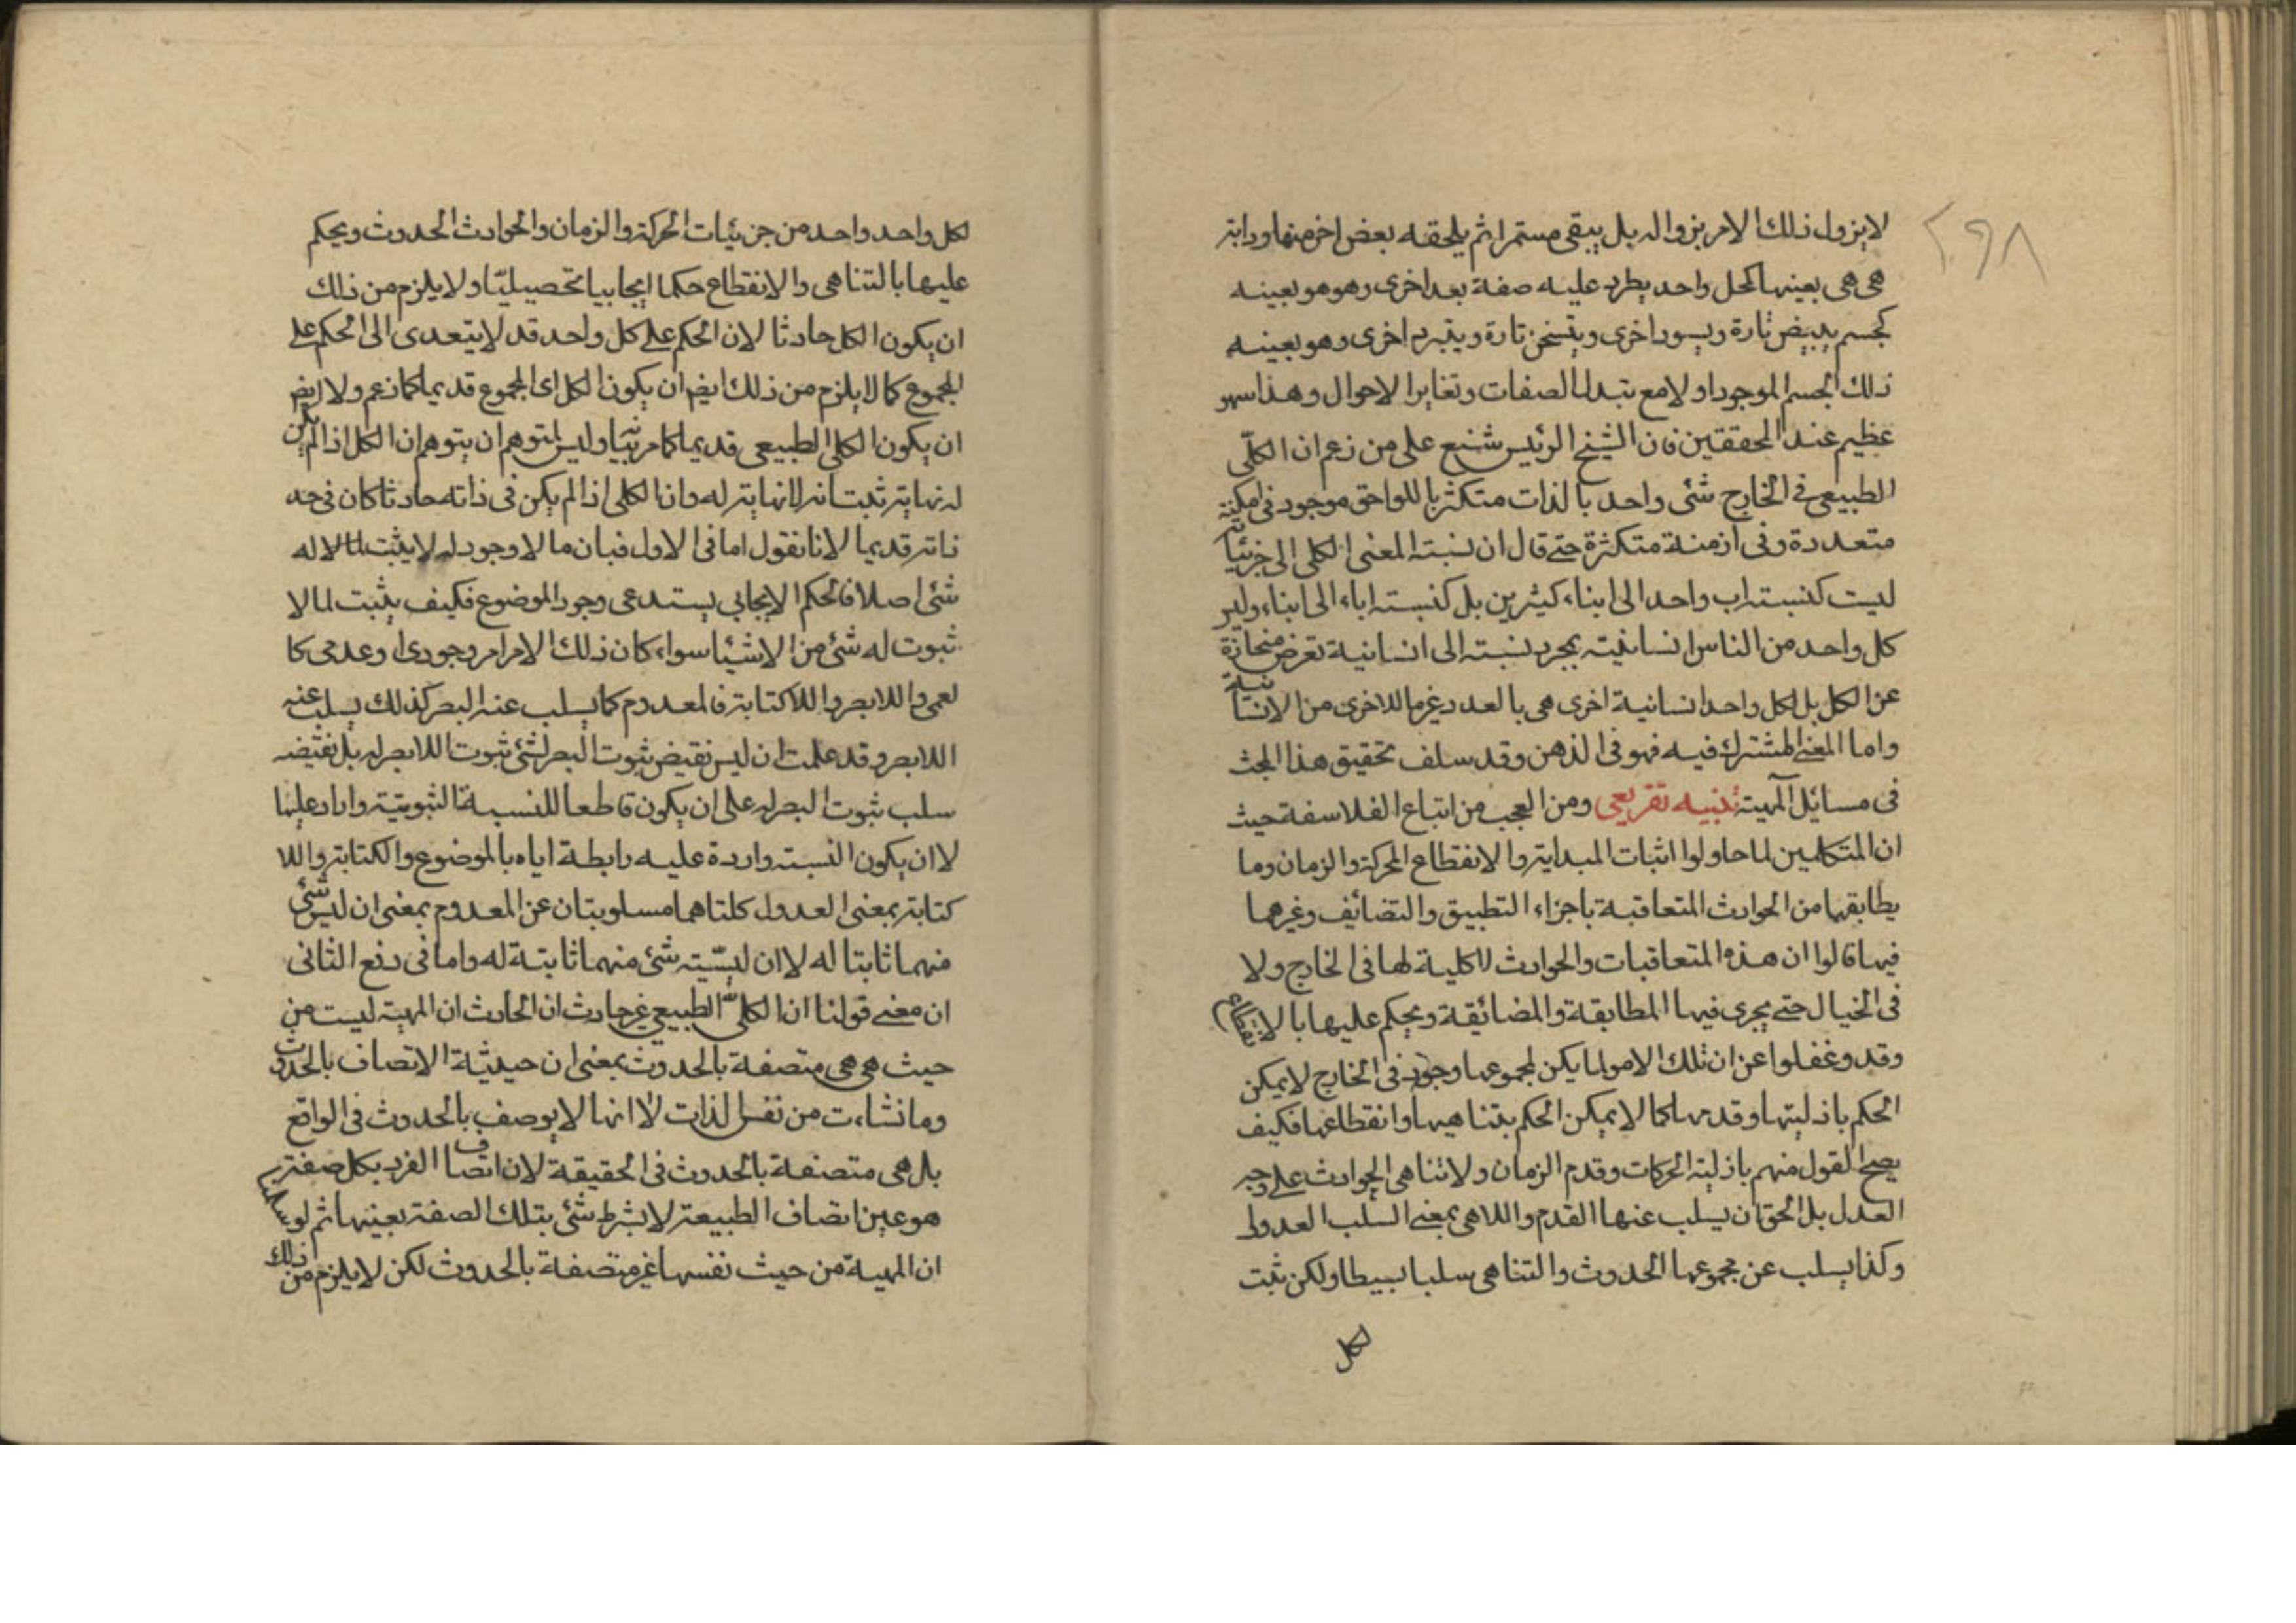 ٢٩٨
لايزول ذلك الامر بزواله بل يبقى مستمرا ثم يلحقه بعض اخر منها وذاته
هى هى بعينها كمحل واحد يطرد عليه صفة بعد اخرى وهو هو بعينه
كجسم يبيض تارة ويسود اخرى ويتسخن تارة ويتبرد اخرى وهو بعينه
ذلك الجسم الموجود اولا مع تبدل الصفات وتغاير الاحوال وهذا سهو
عظيم عند المحققين فان الشيخ الرئيس شنع على من زعم ان الكلّى
الطبيعى فى الخارج شئ واحد بالذات متكثر باللواحق موجود فى امكنة
متعددة وفى ازمنة متكثرة حتى قال ان نسبته المعنى الكلى الى جزئياته
ليست كنسبته اب واحد الى ابناء كثيرين بل كنسبته اباء الى ابناء وليس
كل واحد من الناس انسانيته بمجرد نسبته الى انسانية تفرض منحازة
عن الكل بل لكل واحد انسانية اخرى هى بالعدد غير ما للاخرى من الانسانية
واما المعنى المشترك فيه فهو فى الذهن وقد سلف تحقيق هذا المبحث
فى مسائل المهية تنبيه تقريعى ومن العجب من اتباع الفلاسفة حيث
ان المتكلمين لما حاولوا اثبات المبداية والانقطاع للحركة والزمان وما
يطابقها من الحوادث المتعاقبة باجزاء التطبيق والتضائيف وغيرهما
فيها قالوا ان هذه المتعاقبات والحوادث لا كلية لها فى الخارج ولا
فى الخيال حتى يجرى فيها المطابقة والمضائيقة ويحكم عليها بالانقطاع
وقد وغفلوا عن ان تلك الامور لما يكن لمجموعها وجود فى الخارج لايمكن
الحكم بازليتها وقدمها كما لايمكن الحكم بتناهيها وانقطاعها فكيف
يصح القول منهم بازلية الحركات وقدم الزمان ولا تناهى الحوادث على وجه
العدل بل الحق ان يسلب عنها القدم واللاهى بمعنى السلب العدول
وكذا يسلب عن مجموعها الحدوث والتناهى سلبا بسيطا ولكن ثبت
لكل
لكل واحد واحد من جزئيات الحركة والزمان والحوادث الحدوث ويحكم
عليها بالتناهى والانقطاع حكما ايجابيا تحصيليّا ولا يلزم من ذلك
ان يكون الكل حادثا لان الحكم على كل واحد قد لايتعدى الى الحكم على
المجموع كما لا يلزم من ذلك ايضا ان يكون الكل اى المجموع قديما كما زعم ولا ايضا
ان يكون الكلى الطبيعى قديما كما مر بيانه وليس لمتوهم ان يتوهم ان الكل اذا لم يكن
له نهاية ثبت انه لا نهاية له وان الكلى اذا لم يكن فى ذاته حادثا كان فى حد
ذاته قديما لانا نقول اما فى الاول فبان ما لا وجود له لا يثبت لما لا له
شئ اصلا فالحكم الايجابى يستدعى وجود الموضوع فكيف يثبت لما لا
ثبوت له شئ من الاشياء سواء كان ذلك الامر امر وجودى او عدمى كا
لعمى واللابصر واللاكتابة فالمعدوم كما يسلب عنه البصر كذلك يسلب عنه
اللابصر وقد علمت ان ليس نقيض ثبوت البصر لشئ ثبوت اللابصر له بل نقيضه
سلب ثبوت البصر له على ان يكون قاطعا للنسبة الثبوتية وارادعليها
لا ان يكون النسبته واردة عليه رابطة اياه بالموضوع والكتابة واللا
كتابة بمعنى العدول كلتاهما مسلوبتان عن المعدوم بمعنى ان ليس شئ
منهما ثابتا له لا ان ليسّيته شئ منهما ثابتة له واما فى دفع الثانى
ان معنى قولنا ان الكلى الطبيعى غير حادث ان الحادث ان المهية ليست من
حيث هى هى متصفة بالحدوث بمعنى ان حيثية الاتصاف بالحدوث
وما نشاءت من نفس لذات لا انها لا يوصف بالحدوث فى الواقع
بل هى متصفة بالحدوث فى الحقيقة لان اتصاف الفرد بكل صفة
هو عين اتصاف الطبيعة لا بشرط شئ بتلك الصفة بعينها ثم لو سلمنا
ان المهية من حيث نفسها غير متصفة بالحدوث لكن لا يلزم من ذلك